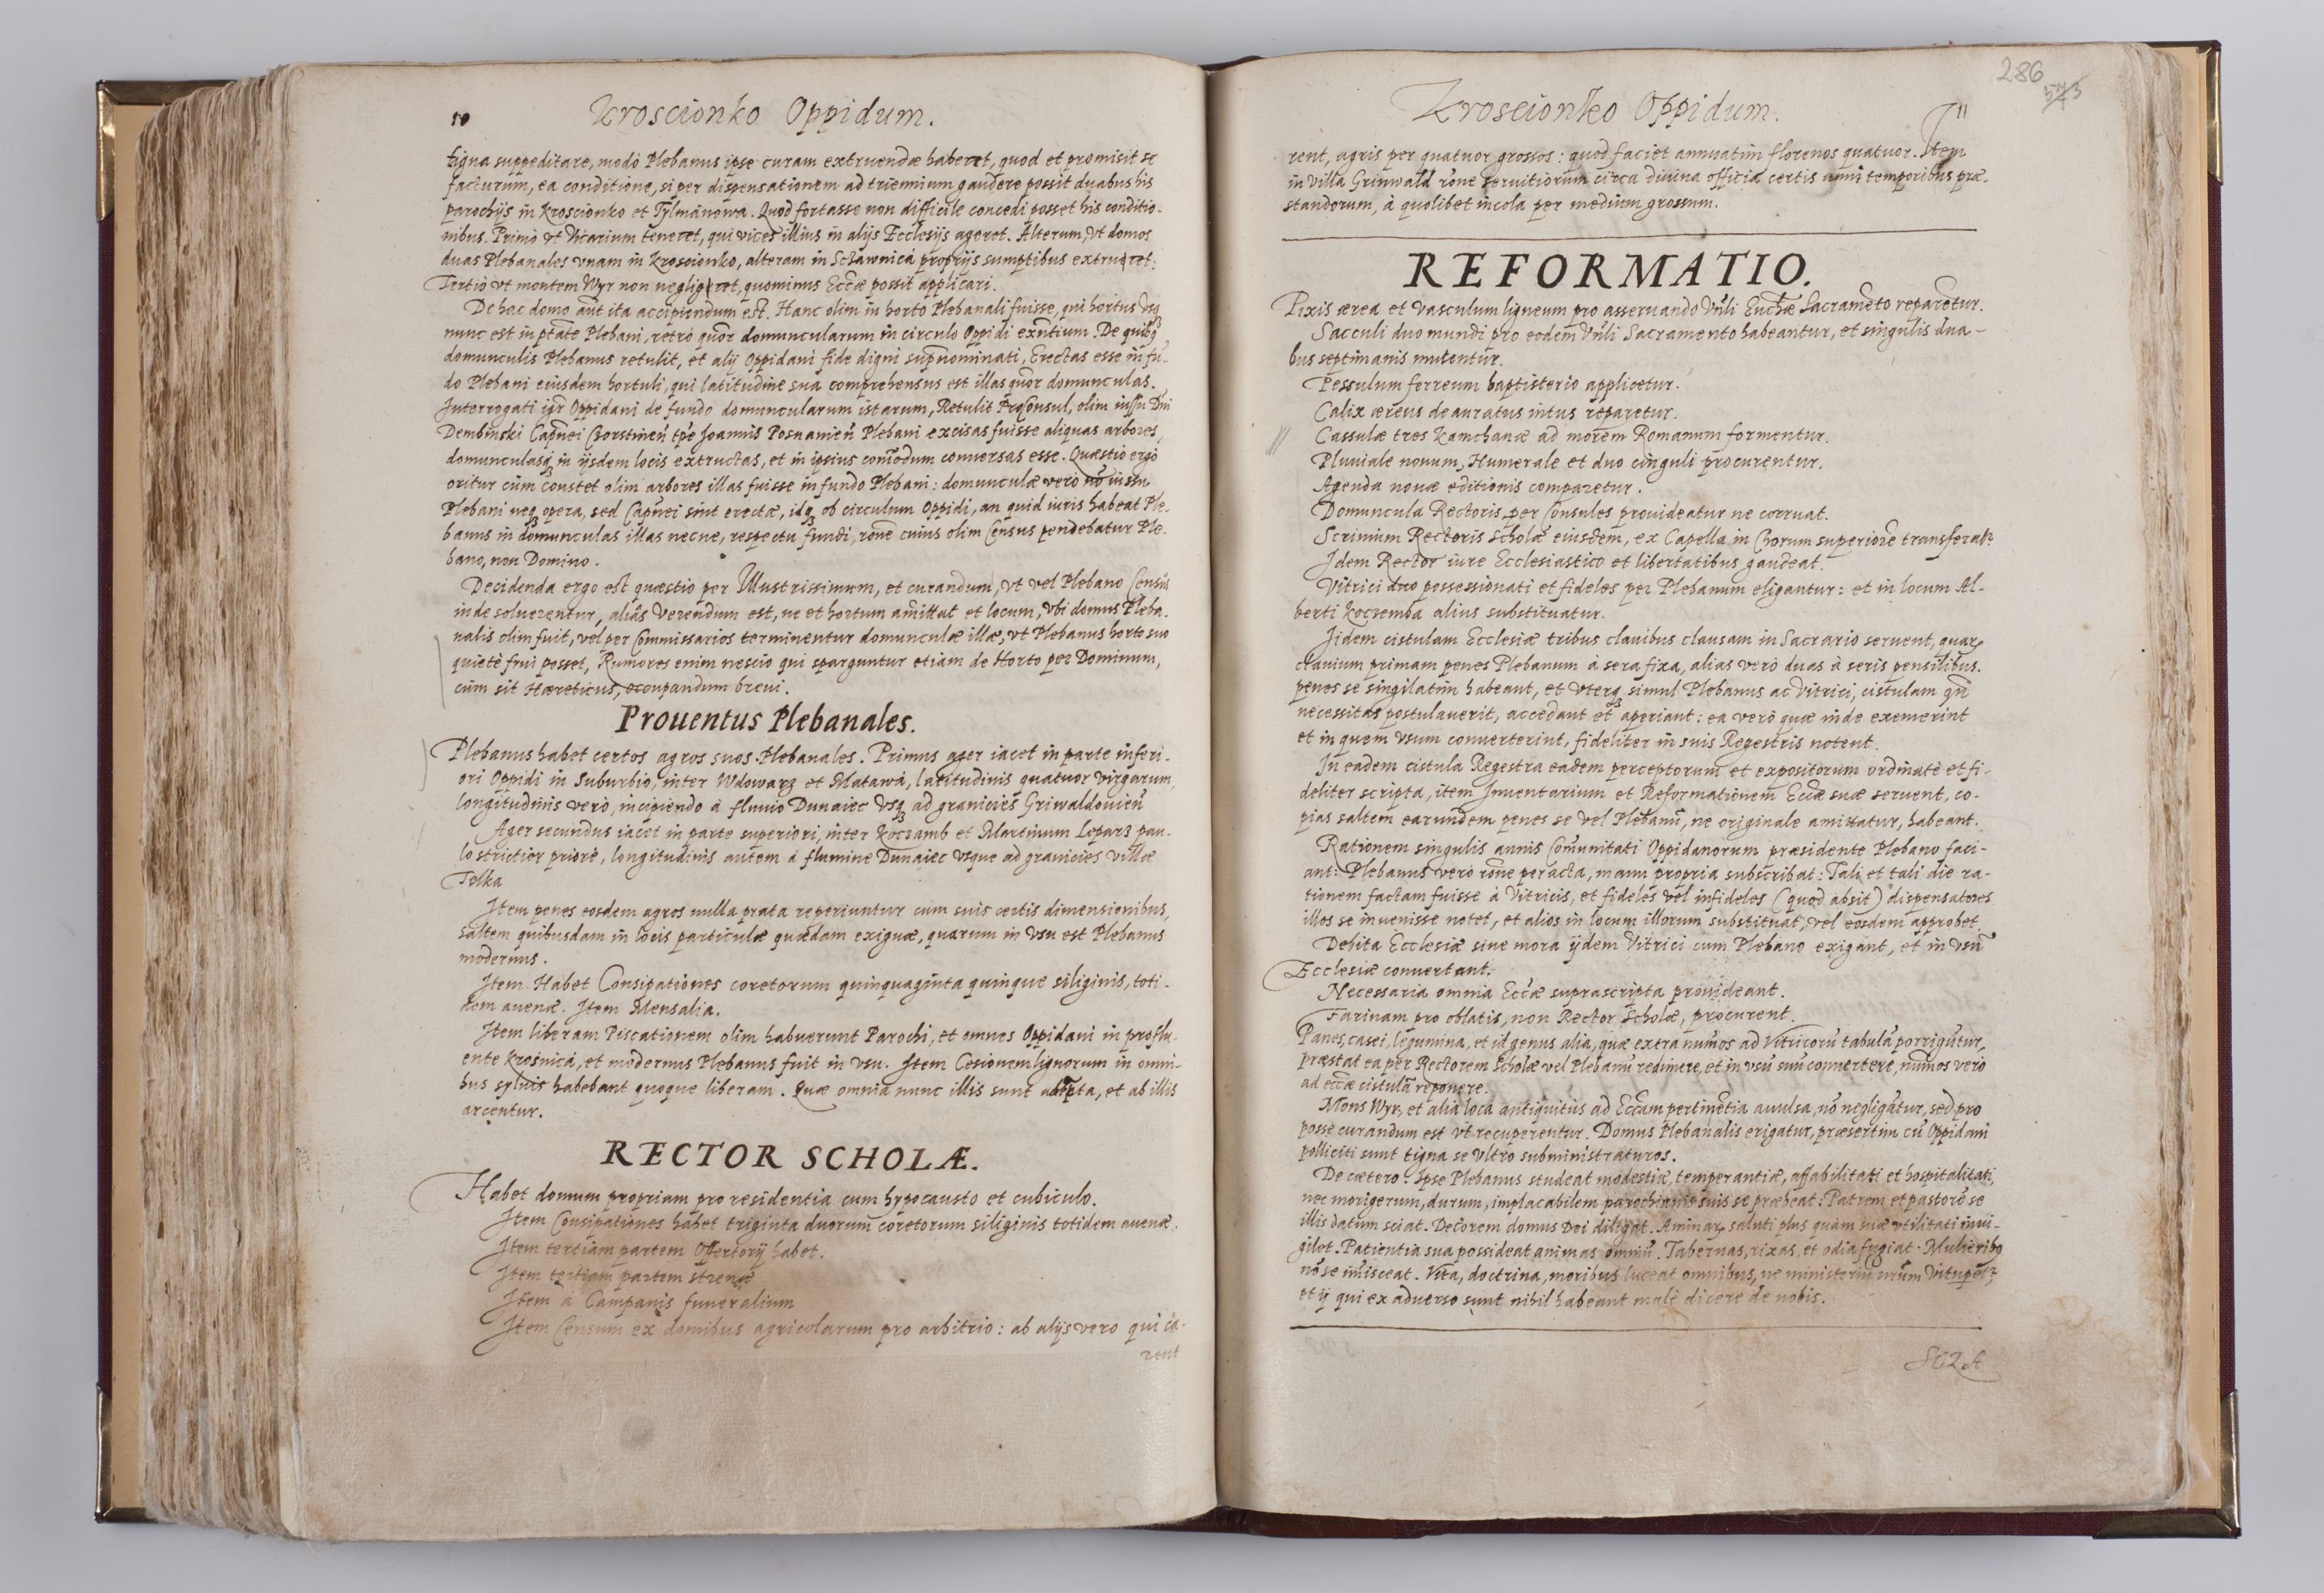 10 Kroscionko Oppidum.
tigna suppeditare, modò Plebanus ipse curam extruendæ haberet, quod et promisit se
facturum, ea conditione, si per dispensationem ad triennium gaudere possit duabus his
parochijs in Kroscionko et Tylmanowa. Quod fortasse non difficile concedi posset his conditio-
nibus. Primò vt Vicarium teneret, qui vices illius in alijs Ecclesijs ageret. Alterum, vt domos
duas Plebanales vnam in Kroscionko, alteram in Sclawnica proprijs sumptibus extrueret:
Tertiò vt montem Wyr non negligeret, quominus Eccæ possit applicari.
De hac domo aũt ita accipiendum est. Hanc olim in horto Plebanali fuisse, qui hortus vsq3
nunc est in ptãte Plebani, retrò quõr domuncularum in circulo Oppidi exñtium. De quibq3
domunculis Plebanus retulit, et alij Oppidani fide digni supnominati, Erectas esse in fũ-
do Plebani eiusdem hortuli, qui latitudine sua comprehensus est illas quõr domunculas.
Interrogati igr Oppidani de fundo domuncularum istarum, Retulit ProConsul, olim iussu Dni
Dembinski Capnei Czorstineñ tpe Joannis Posnanieñ Plebani excisas fuisse aliquas arbores,
domunculasq3 in ijsdem locis extructas, et in ipsius com̃odum conuersas esse. Quæstio ergò
oritur cùm constet olim arbores illas fuisse in fundo Plebani: domunculæ verò nõ iussu
Plebani neq3 opera, sed Capnei sint erectæ, idq3 ob circulum Oppidi, an quid iuris habeat Ple-
banus in domunculas illas necne, respectu fundi, rõne cuius olim Census pendebatur Ple-
bano, non Domino.
Decidenda ergo est quæstio per Illustrissimum, et curandum, vt vel Plebano Census
inde soluerentur, aliàs verendum est, ne et hortum amittat et locum, vbi domus Pleba-
nalis olim fuit, vel per Commissarios terminentur domunculæ illæ, vt Plebanus horto suo
quietè frui posset, Rumores enim nescio qui sparguntur etiam de Horto per Dominum,
cùm sit Hæreticus, occupandum breui.
Prouentus Plebanales.
Plebanus habet certos agros suos Plebanales. Primus ager iacet in parte inferi-
ori Oppidi in Suburbio, inter Wdowarz et Matawa, latitudinis quatuor virgarum,
longitudinis verò, incipiendo à fluuio Dunaiec vsq3 ad granicies Griwaldouieñ
Ager secundus iacet in parte superiori, inter Koczamb et Martinum Leparz pau-
lo strictior priore, longitudinis autem à flumine Dunaiec vsque ad granicies villæ
Tolka
Item penes eosdem agros nulla prata reperiuntur cum suis certis dimensionibus,
saltem quibusdam in locis particulæ quædam exiguæ, quarum in vsu est Plebanus
modernus.
Item Habet Consipationes coretorum quinquaginta quinque siliginis, toti-
dem auenæ. Item Mensalia.
Item liberam Piscationem olim habuerunt Parochi, et omnes Oppidani in proflu-
ente Krosnica, et modernus Plebanus fuit in vsu. Item Cesionem lignorum in omni-
bus syluis habebant quoque liberam. Quæ omnia nunc illis sunt adẽpta, et ab illis
arcentur.
RECTOR SCHOLÆ.
Habet domum propriam pro residentia cum hypocausto et cubiculo.
Item Consipationes habet triginta duorum coretorum siliginis totidem auenæ.
Item tertiam partem Offertorij habet.
Item tertiam partem strenæ
Item à Campanis funeralium
Item Censum ex domibus agricolarum pro arbitrio: ab alijs vero qui ca-
rent
286
Kroscionko Oppidum. 11
rent, agris per quatuor grossos: quod faciet annuatim florenos quatuor. Item
in villa Grinwald rõne seruitiorum circa diuina officia certis anni temporibus præ-
standorum, à quolibet incola per medium grossum.
REFORMATIO.
Pixis ærea et vasculum ligneum pro asseruando Vñli Euchæ Sacramẽto reparetur.
Sacculi duo mundi pro eodem Vñli Sacramento habeantur, et singulis dua-
bus septimanis mutentur.
Pessulum ferreum baptisterio applicetur.
Calix æreus deauratus intus reparetur.
Cassulæ tres Kamchanæ ad morem Romanum formentur.
Pluuiale nouum, Humerale et duo cinguli procurentur.
Agenda nouæ editionis comparetur.
Domuncula Rectoris, per Consules prouideatur ne corruat.
Scrinium Rectoris Scholæ eiusdem, ex Capella in Chorum superiorẽ transferatr
Idem Rector iure Ecclesiastico et libertatibus gaudeat.
Vitrici duo possessionati et fideles per Plebanum eligantur: et in locum Al-
berti Koczemba alius substituatur.
Jidem cistulam Ecclesiæ tribus clauibus clausam in Sacrario seruent, quar
clauium primam penes Plebanum à sera fixa, alias verò duas à seris pensilibus.
penes se singilatim habeant, et vterq3 simul Plebanus ac Vitrici, cistulam qñ
necessitas postulauerit, accedant et aperiant: ea verò quæ inde exemerint
et in quem vsum conuerterint, fideliter in suis Regestris notent.
In eadem cistula Regestra eadem perceptorum et expositorum ordinatè et fi-
deliter scripta, item Inuentarium et Reformationem Eccæ suæ seruent, co-
pias saltem earundem penes se vel Plebanũ, ne originale amittatur, habeant.
Rationem singulis annis Com̃unitati Oppidanorum præsidente Plebano faci-
ant: Plebanus verò rõne peracta, manu propria subscribat: Tali et tali die ra-
tionem factam fuisse à Vitricis, et fideles vel infideles (quod absit) dispensatores
illos se inuenisse notet, et alios in locum illorum substituat, vel eosdem approbet
Debita Ecclesiæ sine mora ijdem Vitrici cum Plebano exigant, et in vsũ
Ecclesiæ conuertant.
Necessaria omnia Eccæ suprascripta prouideant.
Farinam pro oblatis, non Rector Scholæ, procurent.
Panes, casei, legumina, et id genus alia, quæ extra num̃os ad Vitricorũ tabulã porrigũtur,
præstat ea per Rectorem Scholæ vel Plebanũ redimere, et in vsũ suũ conuertere, num̃os verò
ad eccæ cistulã reponere.
Mons Wyr, et alia loca antiquitùs ad Eccam pertinẽtia auulsa, nõ negligãtur, sed pro
posse curandum est vt recuperentur. Domus Plebanalis erigatur, præsertim cũ Oppidani
polliciti sunt tigna se vltrò subministraturos.
De cætero. Ipse Plebanus studeat modestiæ, temperantiæ, affabilitati et hospitalitati,
nec morigerum, durum, implacabilem parochianis suis se præbeat: Patrem et pastorẽ se
illis datum sciat. Decorem domus Dei diligat. Animar saluti plus quàm suæ vtilitati inui-
gilet. Patientia sua possideat animas omniũ. Tabernas, rixas, et odia fugiat. Mulieribq
nõ se im̃isceat. Vita, doctrina, moribus luceat omnibus, ne ministeriũ nrũm vituperr
et ij qui ex aduerso sunt nihil habeant malè dicere de nobis.